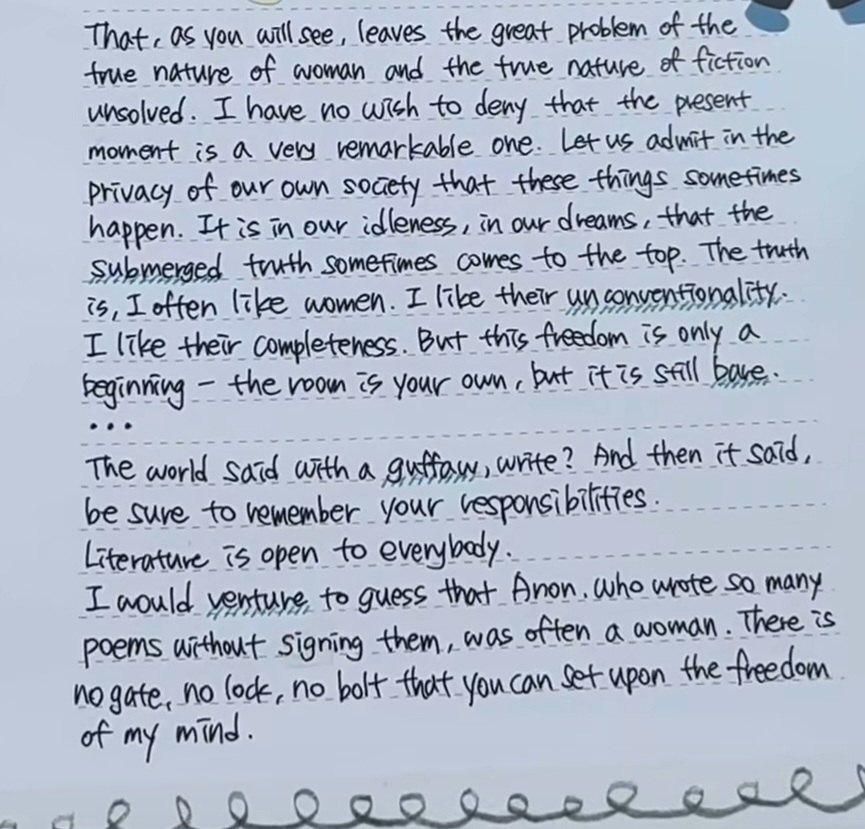 That, as you will see, leaves the great problem of the
true nature of woman and the true nature of fiction
unsolved. I have no wish to deny that the present
moment is a very remarkable one. Let us admit in the
privacy of our own society that these things sometimes
happen. It is in our idleness, in our dreams, that the
submerged truth sometimes comes to the top. The truth
is, I often like women. I like their unconventionality.
I like their completeness. But this freedom is only a
beginning – the room is your own, but it is still bare.
...
The world said with a guffaw, write? And then it said,
be sure to remember your responsibilities.
Literature is open to everybody.
I would venture to guess that Anon. who wrote so many
poems without signing them, was often a woman. There is
no gate, no lock, no bolt that you can set upon the freedom
of my mind.